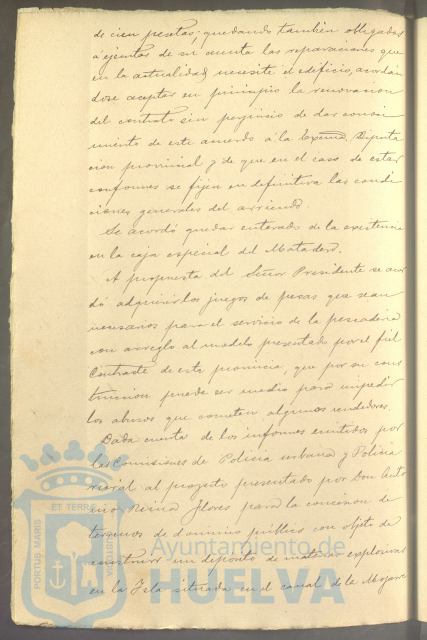 de cien pesetas; quedando tambien obligados
á ejecutar de su cuenta las reparaciones que
en la actualidad necesite el edificio, acordán
dose aceptar en principio la renovacion
del contrato sin perjuicio de dar conoci
miento de este acuerdo á la Excma. Diputa
cion provincial y de que en el caso de estar
conformes se fijen en definitiva las condi
ciones generales del arriendo.
Se acordó quedar enterado de la existencia
en la caja especial del Matadero.
A propuesta del Señor Presidente se acor
dó adquirir los juegos de pesas que sean
necesarios para el servicio de la pescaderia
con arreglo al modelo presentado por el fiel
Contraste de esta provincia, que por su cons
truccion puede ser medio para impedir
los abusos que cometen algunos vendedores.
Dada cuenta de los informes emitidos por
las Comisiones de Policia urbana y Policia
rural al proyecto presentado por Don Anto
nio Flores para la concesion de
terrenos de dominio público con objeto de
construir un deposito de materias explosivas
en la Isla situada en el canal de la
PORTUS MARIS
ET TERRAE
CUSTODIA
Ayuntamiento de
HUELVA